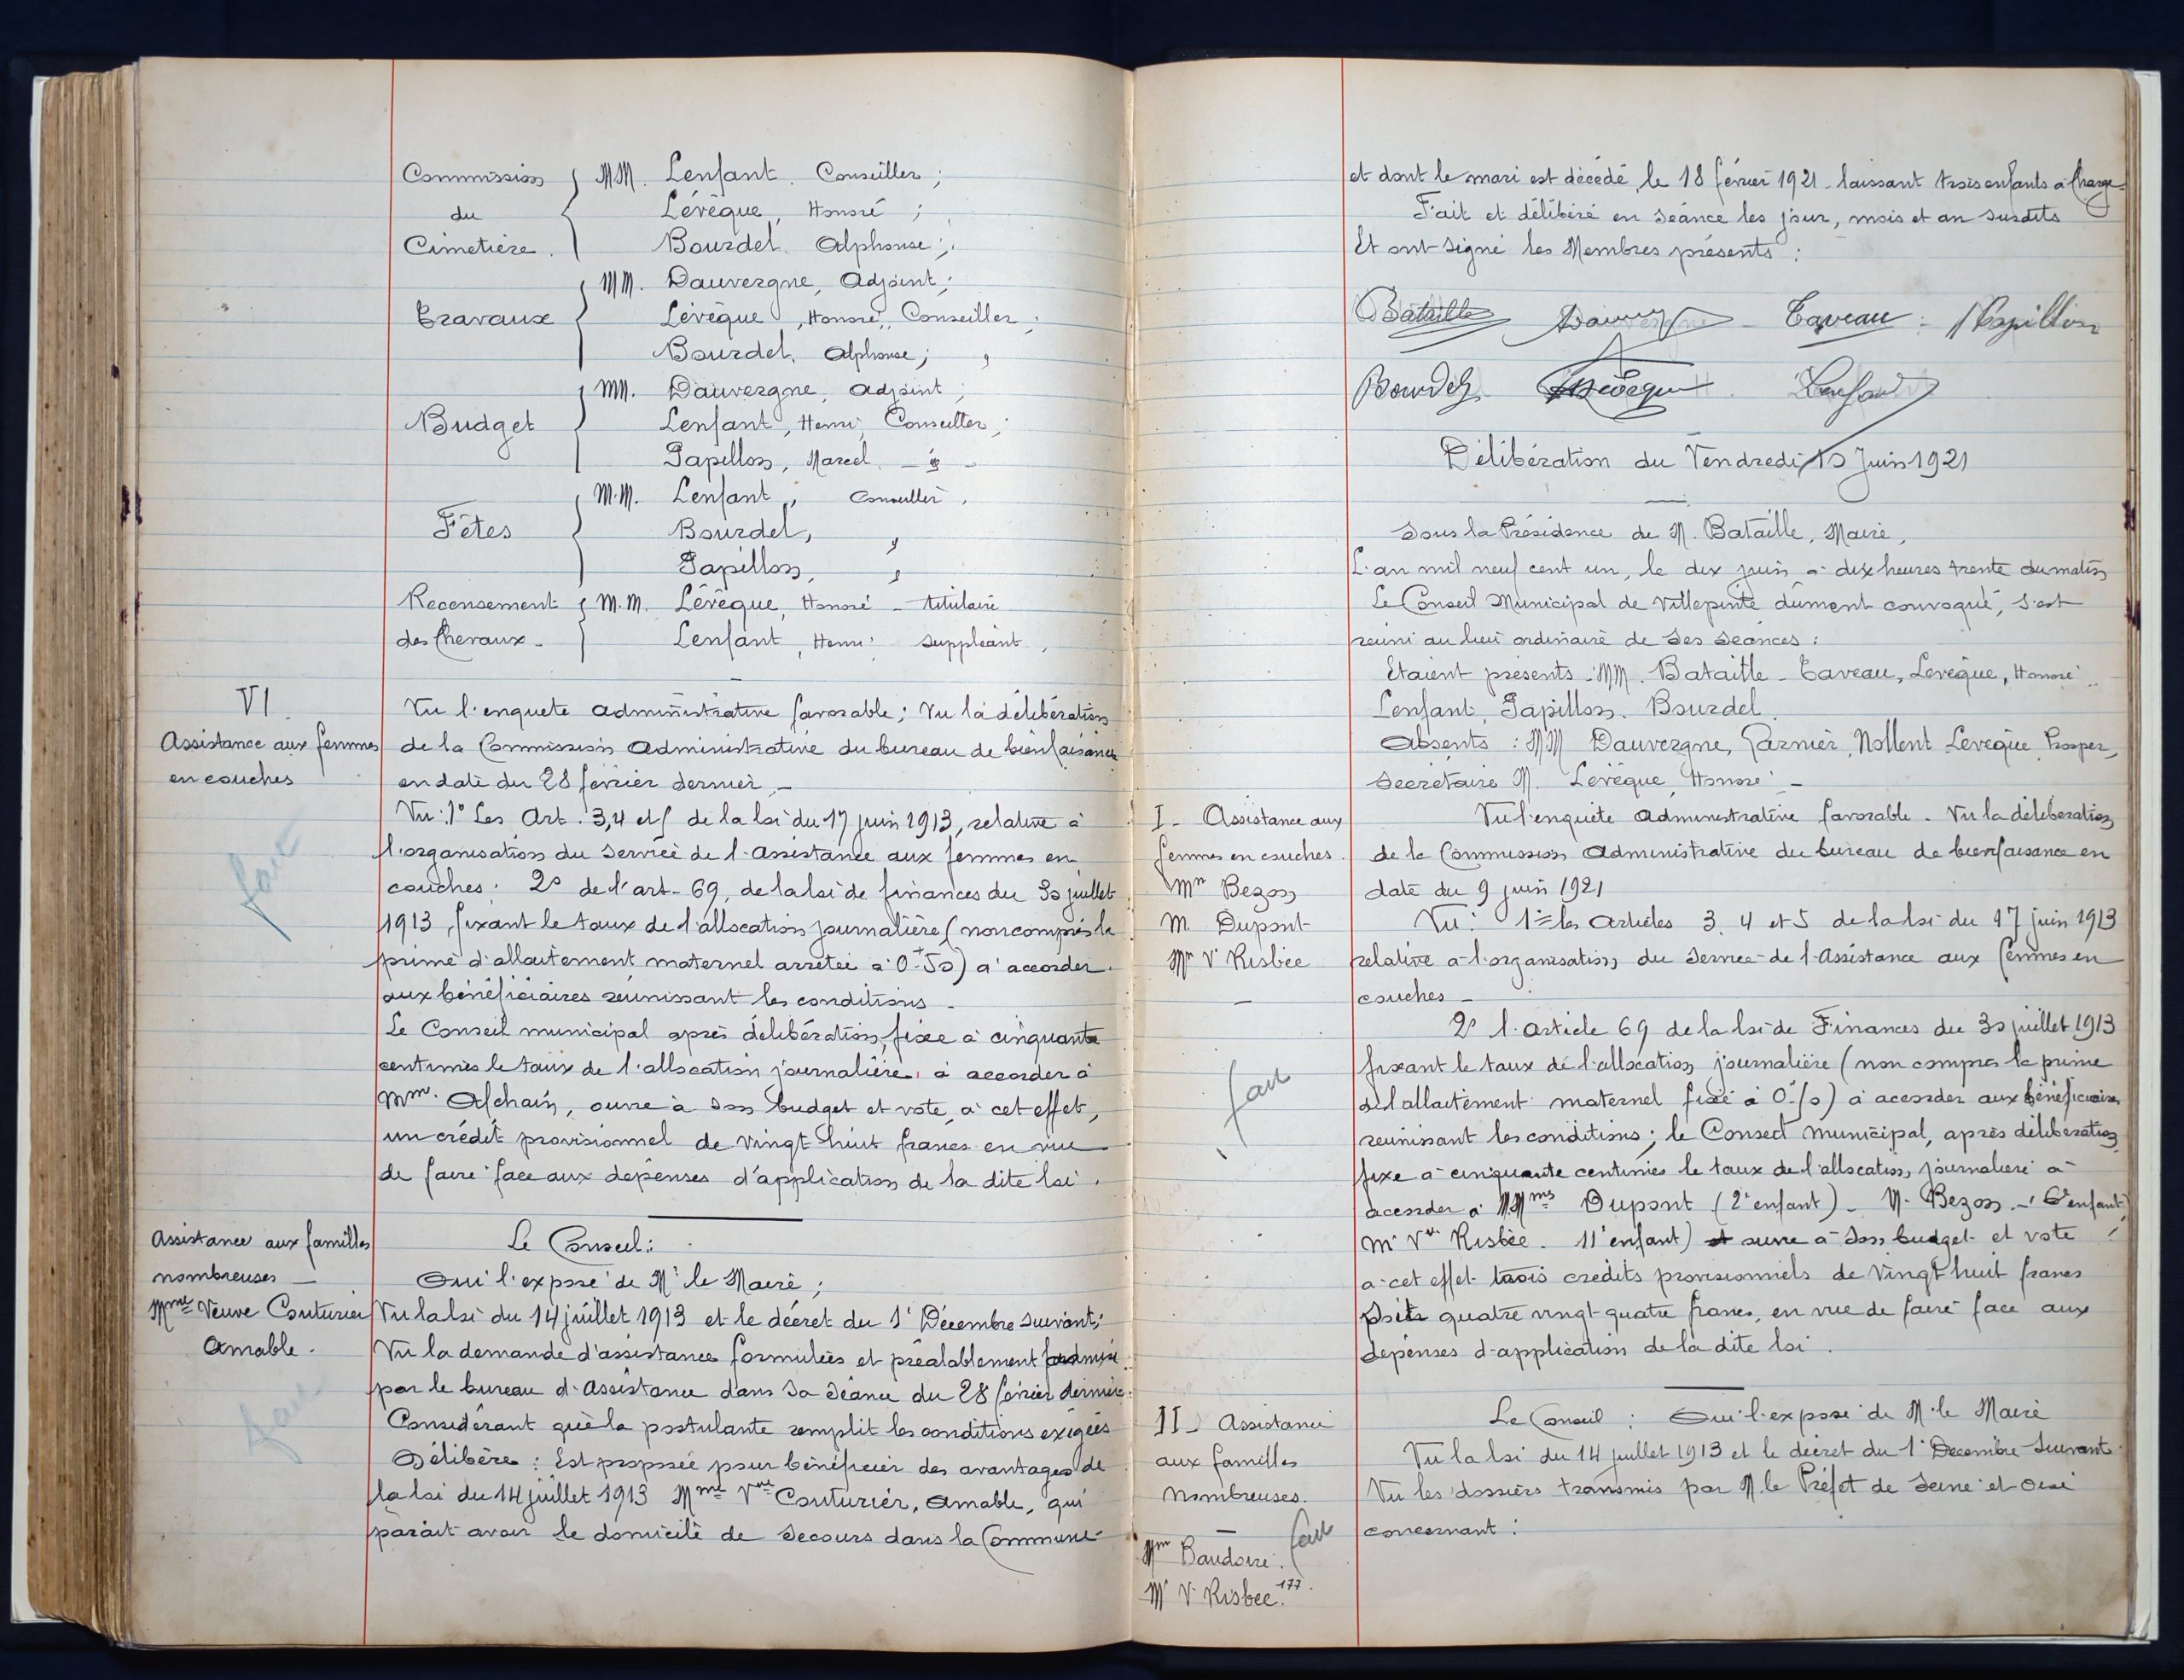 Commission MM. Lenfant. Conseiller ;
du Lévêque, Honoré ;
Cimetière. Bourdel. Alphonse ;
MM. Dauvergne, Adjoint ;
Travaux Lévêque, Honoré, Conseiller ;
Bourdel, Alphonse ; "
MM. Dauvergne, Adjoint ;
Budget Lenfant, Henri, Conseiller ;
Papillon, Marcel. - id -
M.M. Lenfant, Conseiller.
Fêtes Bourdel, "
Papillon, "
Recensement M.M. Lévêque, Honoré - titulaire
des Chevaux - Lenfant, Henri suppléant.
VI.
Assistance aux femmes
en couches
fait
Vu l'enquete administrative favorable ; Vu la délibération
de la Commission administrative du bureau de bienfaisance
en date du 28 février dernier. -
Vu : 1° Les Art. 3, 4 et 5 de la loi du 17 juin 1913, relative à
l'organisation du Service de l'Assistance aux femmes en
couches ; 2° de l'art. 69, de la loi de finances du 30 juillet
1913, fixant le taux de l'allocation journalière (non compris la
prime d'allaitement maternel arretée à 0f50) à accorder
aux bénéficiaires réunissant les conditions -
Le Conseil municipal après délibération, fixe à cinquante
centimes le taux de l'allocation journalière, à accorder à
Mme. Afchain, ouvre à son budget et vote, à cet effet,
un crédit provisionnel de vingt huit francs en vue
de faire face aux dépenses d'application de la dite loi.
Assistance aux familles
nombreuses -
Mme Veuve Couturier
Amable.
fait
Le Conseil :
Ouï l'exposé de Mr le Maire ;
Vu la loi du 14 juillet 1913 et le décret du 1er Décembre suivant ;
Vu la demande d'assistance formulées et préalablement admise
par le bureau d'Assistance dans sa séance du 28 février dernier.
Considérant que la postulante remplit les conditions exigées
Délibère : Est proposée pour bénéficier des avantages de
la loi du 14 juillet 1913 Mme Vve Couturier, Amable, qui
parait avoir le domicile de secours dans la Commune
et dont le mari est décédé, le 18 février 1921 - laissant trois enfants à charge -
Fait et délibéré en séance les jour, mois et an susdits
Et ont signé les Membres présents :
Bataille Dauvergne Taveau M Papillon
Bourdel H Lévêque Lenfant
Délibération du Vendredi 10 Juin 1921
Sous la Présidence de M. Bataille, Maire,
L'an mil neuf cent un, le dix juin à dix heures trente du matin
Le Conseil Municipal de Villepinte dûment convoqué, s'est
réuni au lieu ordinaire de ses séances :
Etaient présents : MM. Bataille - Taveau, Leveque, Honoré
Lenfant, Papillon. Bourdel.
Absents : MM Dauvergne, Garnier, Nollent Leveque Prosper,
Secrétaire M. Lévêque, Honoré -
I - Assistance aux
femmes en couches.
Mme Bezon
M. Dupont
Me Ve Risbée
fait
Vu l'enquête administrative favorable. Vu la délibération
de la Commission administrative du bureau de bienfaisance en
date du 9 juin 1921
Vu : 1° les articles 3. 4 et 5 de la loi du 17 juin 1913
relative à l'organisation du Service de l'Assistance aux femmes en
couches -
2° l'article 69 de la loi de Finances du 30 juillet 1913
fixant le taux de l'allocation journalière (non compris la prime
d'allaitement maternel fixé à 0f50) à accorder aux bénéficiaires
reunissant les conditions ; le Conseil municipal, après délibération
fixe à cinquante centimes le taux de l'allocation journalière à
accorder à MMmes Dupont (2e enfant) - M. Bezon - (6e enfant)
Me Vve Risbée. 11e enfant) et ouvre à son budget et vote
à cet effet trois crédits provisionnels de Vingt huit francs
soit quatre vingt quatre francs, en vue de faire face aux
dépenses d'application de la dite loi.
II - Assistance
aux familles
nombreuses.
fait
Mme Baudoire.
Me Ve Risbée.
177.
Le Conseil : Ouï l'exposé de M. le Maire
Vu la loi du 14 juillet 1913 et le décret du 1er Decembre suivant
Vu les dossiers transmis par M. le Préfet de Seine et Oise
concernant :